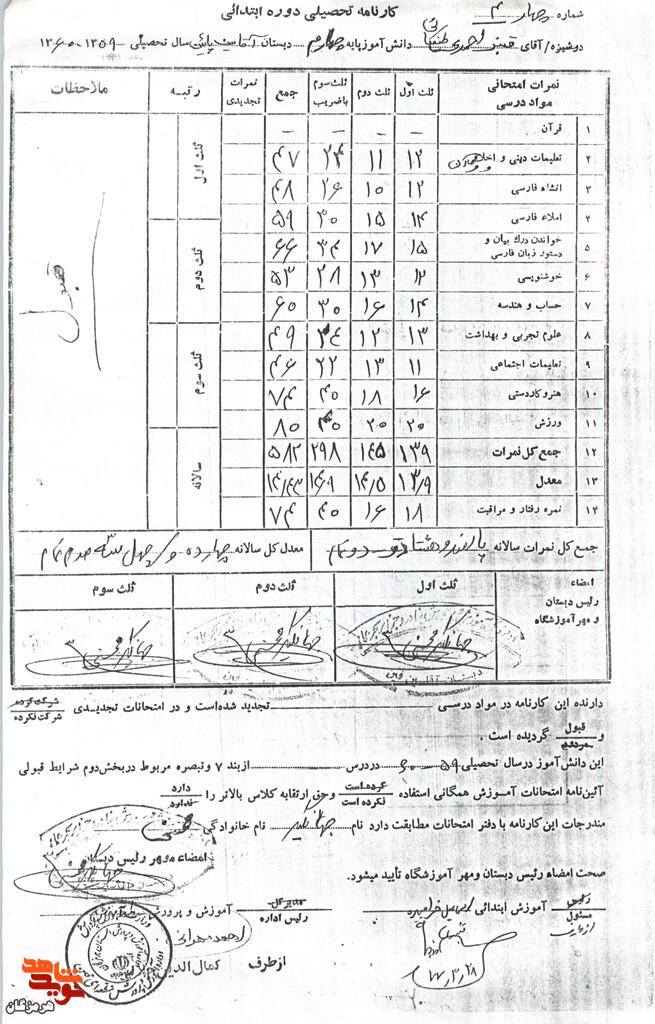 شماره چهار ۴ کارنامه تحصیلی دوره ابتدائی
دوشیزه/آقای قنبر احمدی دانش آموز پایه چهارم دبستان سال تحصیلی ۱۳۵۹-۱۳۶۰
نمرات امتحانی مواد درسی ثلث اول ثلث دوم ثلث سوم باضریب جمع نمرات تجدیدی رتبه ملاحظات
۱ قرآن – – – –
۲ تعلیمات دینی و اخلاق ۱۲ ۱۱ ۲۴ ۴۷
۳ انشاء فارسی ۱۲ ۱۰ ۲۶ ۴۸
۴ املاء فارسی ۱۴ ۱۵ ۳۰ ۵۹
۵ خواندن درک بیان و دستور زبان فارسی ۱۵ ۱۷ ۳۴ ۶۶
۶ خوشنویسی ۱۲ ۱۳ ۲۸ ۵۳
۷ حساب و هندسه ۱۴ ۱۶ ۳۰ ۶۰
۸ علوم تجربی و بهداشت ۱۳ ۱۲ ۲۴ ۴۹
۹ تعلیمات اجتماعی ۱۱ ۱۳ ۲۲ ۴۶
۱۰ هنر و کاردستی ۱۶ ۱۸ ۴۰ ۷۴
۱۱ ورزش ۲۰ ۲۰ ۴۰ ۸۰
۱۲ جمع کل نمرات ۱۳۹ ۱۴۵ ۲۹۸ ۵۸۲
۱۳ معدل ۱۳/۹ ۱۴/۵ ۱۴/۹
۱۴ نمره رفتار و مراقبت ۱۸ ۱۶ ۴۰ ۷۴
ثلث اول
ثلث دوم
ثلث سوم
سالانه
قبول
جمع کل نمرات سالانه پانصد و هشتاد و دو تمام معدل کل سالانه چهارده و چهل سه صدم تمام
امضاء رئیس دبستان و مهر آموزشگاه ثلث اول ثلث دوم ثلث سوم
دارنده این کارنامه در مواد درسی تجدید شده است و در امتحانات تجدیدی شرکت کرده شرکت نکرده
و قبول مردود گردیده است .
این دانش آموز در سال تحصیلی ۵۹-۶۰ در درس از بند ۷ و تبصره مربوط در بخش دوم شرایط قبولی
آئین نامه امتحانات آموزش همگانی استفاده کرده است نکرده است و حق ارتقاء به کلاس بالاتر را دارد ندارد
مندرجات این کارنامه با دفتر امتحانات مطابقت دارد نام جهانگیر نام خانوادگی
امضاء و مهر رئیس دبستان
صحت امضاء رئیس دبستان و مهر آموزشگاه تأیید میشود.
رئیس مسئول آموزش ابتدائی مدیر کل رئیس اداره آموزش و پرورش
از طرف کمال الدین
شاهد
نوید
هرمزگان